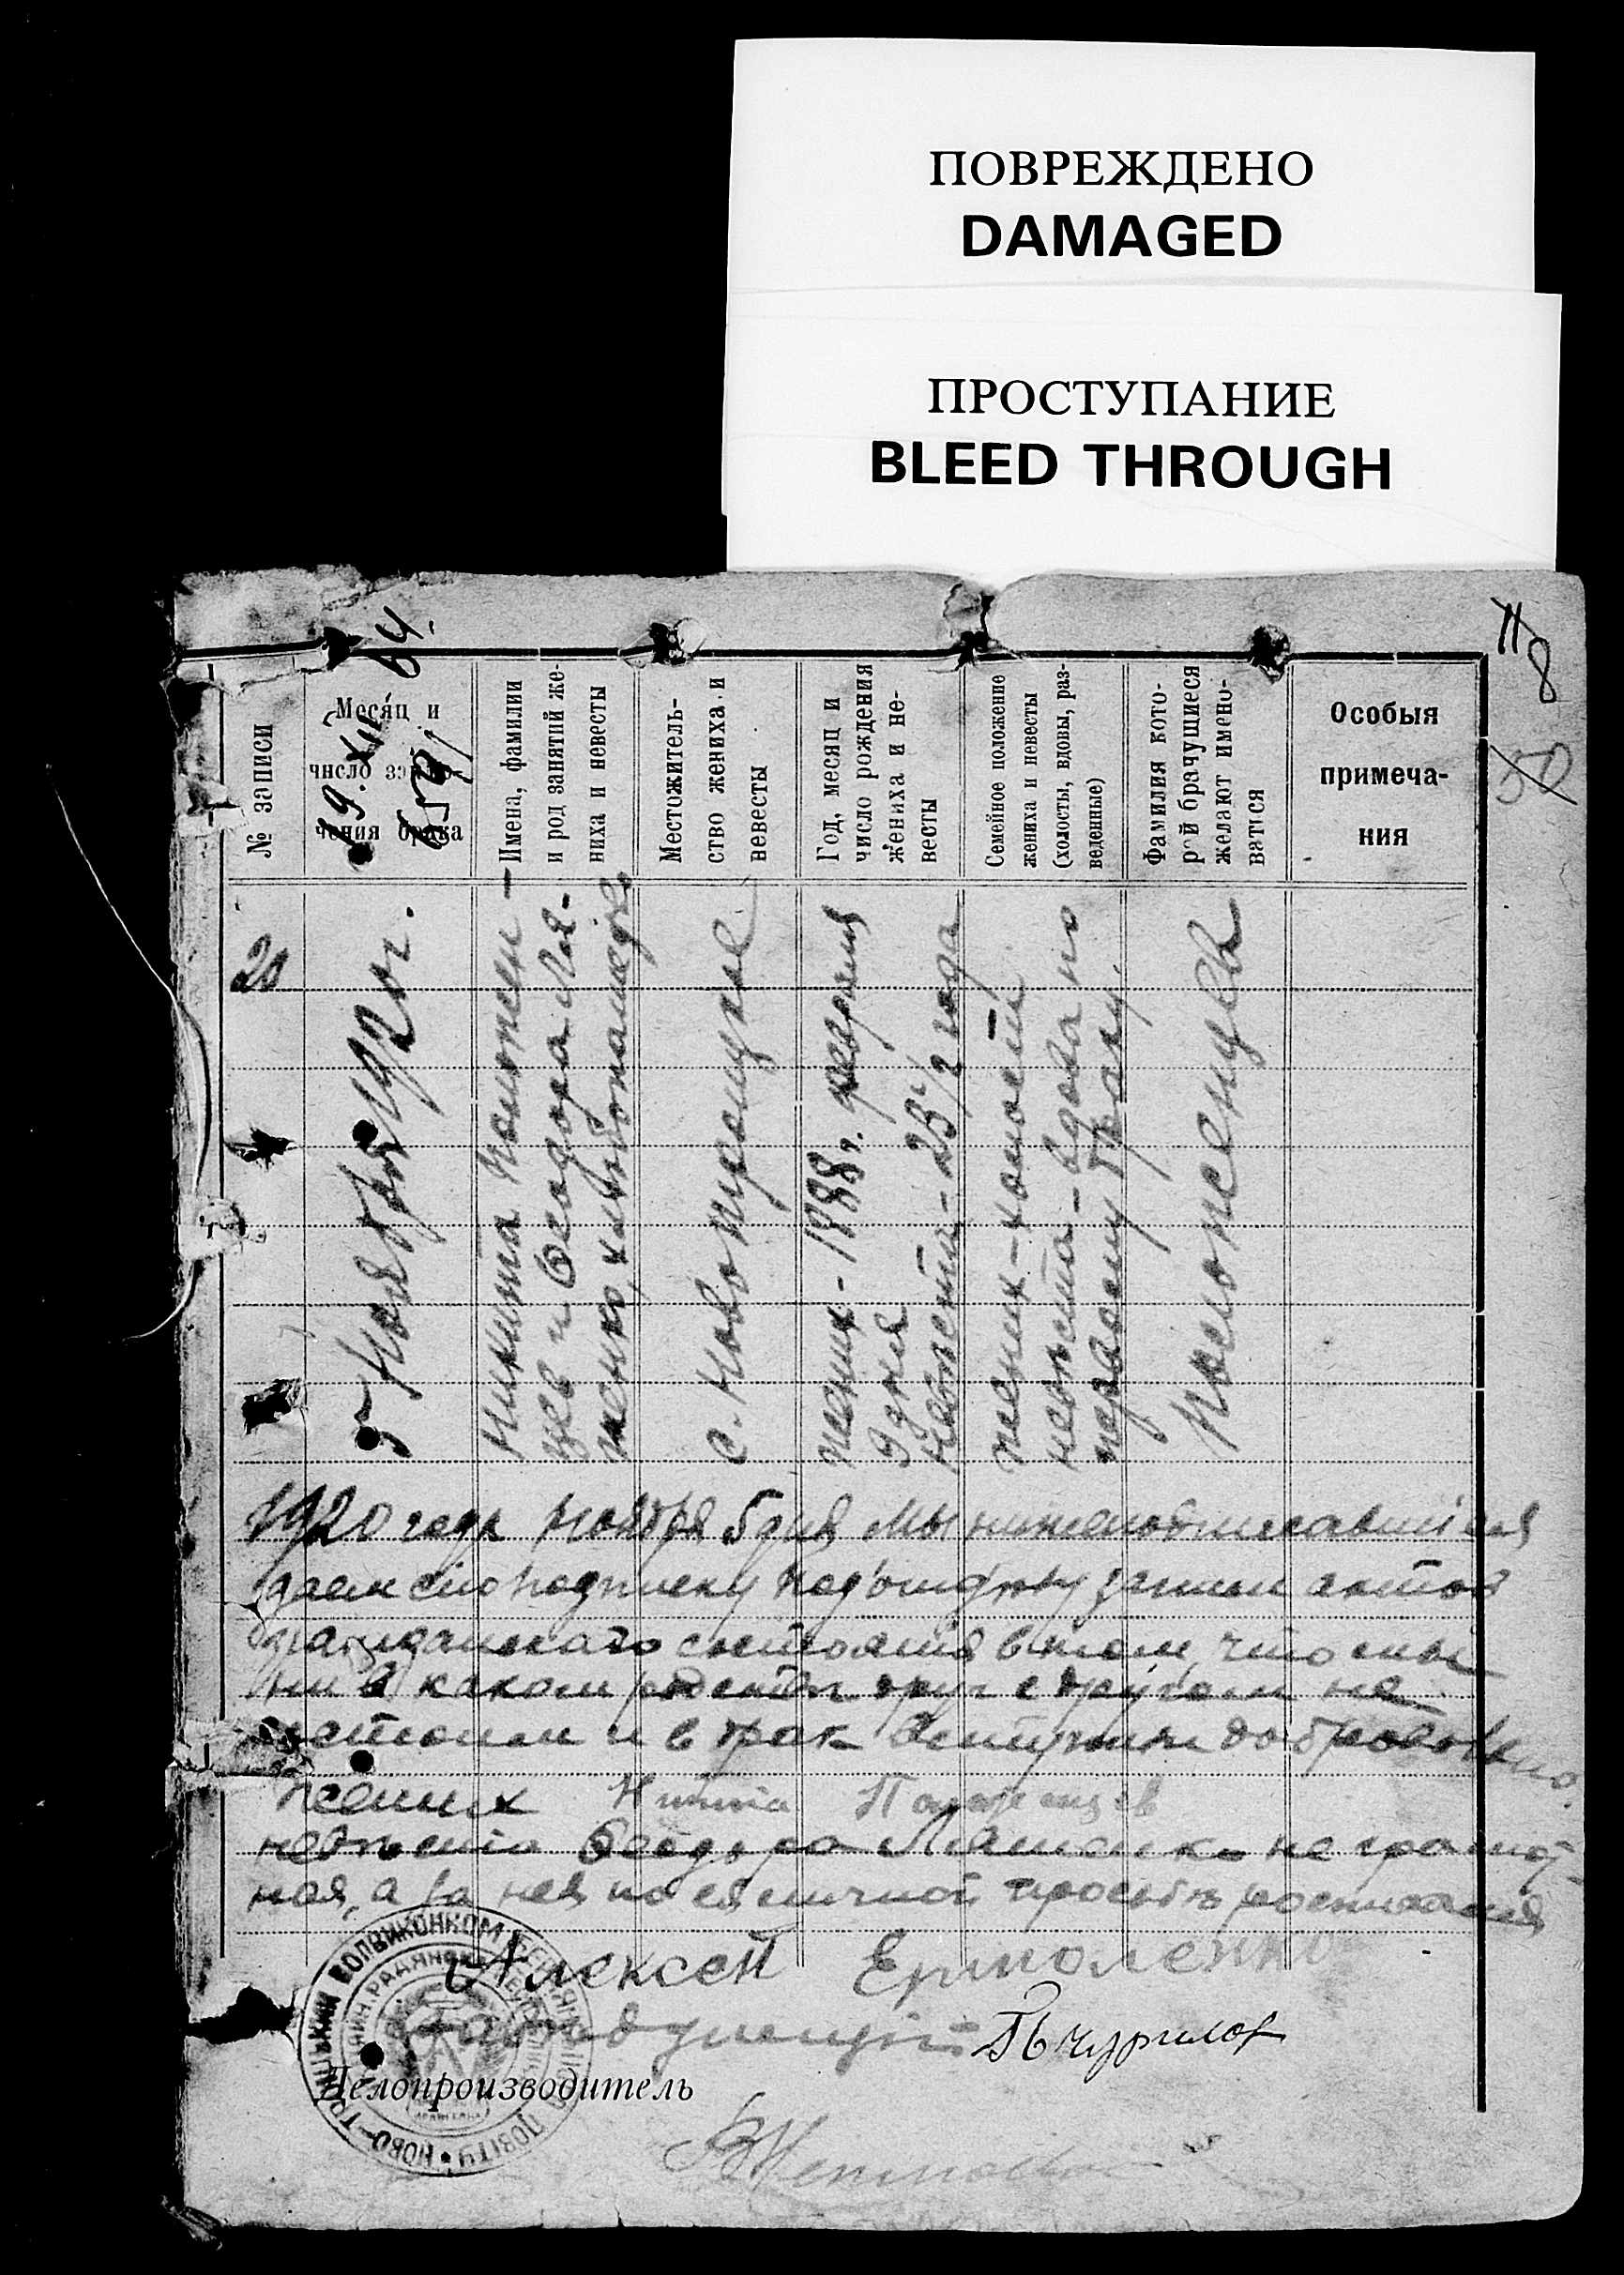 ПОВРЕЖДЕНО
DAMAGED
ПРОСТУПАНИЕ
BLEED THROUGH
11
8
50
19. XII 64.
№ записи
Месяц и
число
чения брака
Имена, фамилии
и род занятий же-
ниха и невесты
Местожитель-
ство жениха и
невесты
Год, месяц и
число рождения
жениха и не-
весты
Семейное положение
жениха и невесты
(холосты, вдовы, раз-
веденные)
Фамилия кото-
рой брачущиеся
желают имено-
ваться
Особыя
примеча-
ния
20
5 Ноября 1920 г.
Никита
цев и Феодора Ля-
шенко,
с. Новотроицкое
жених - 1888 г. февраля
9 дня
невеста - 23 1/2 года
жених - холост
невеста - вдова по
первому браку.
1920 года Ноября 5 дня мы нижеподписавшиеся
даем сию подписку записи актов
гражданскаго состояния в том, что мы
ни в каком родстве друг с другом не
состоим и в брак вступаем добровольно.
жених Никита
невеста Феодора Ляшенко не грамот-
ная, а за нея по ея личной просьбе росписался
Алексей Ермоленко
Заведующий
Делопроизводитель
НОВО-ТРОЇЦЬКИЙ ВОЛВИКОНКОМ ПОВІТУ